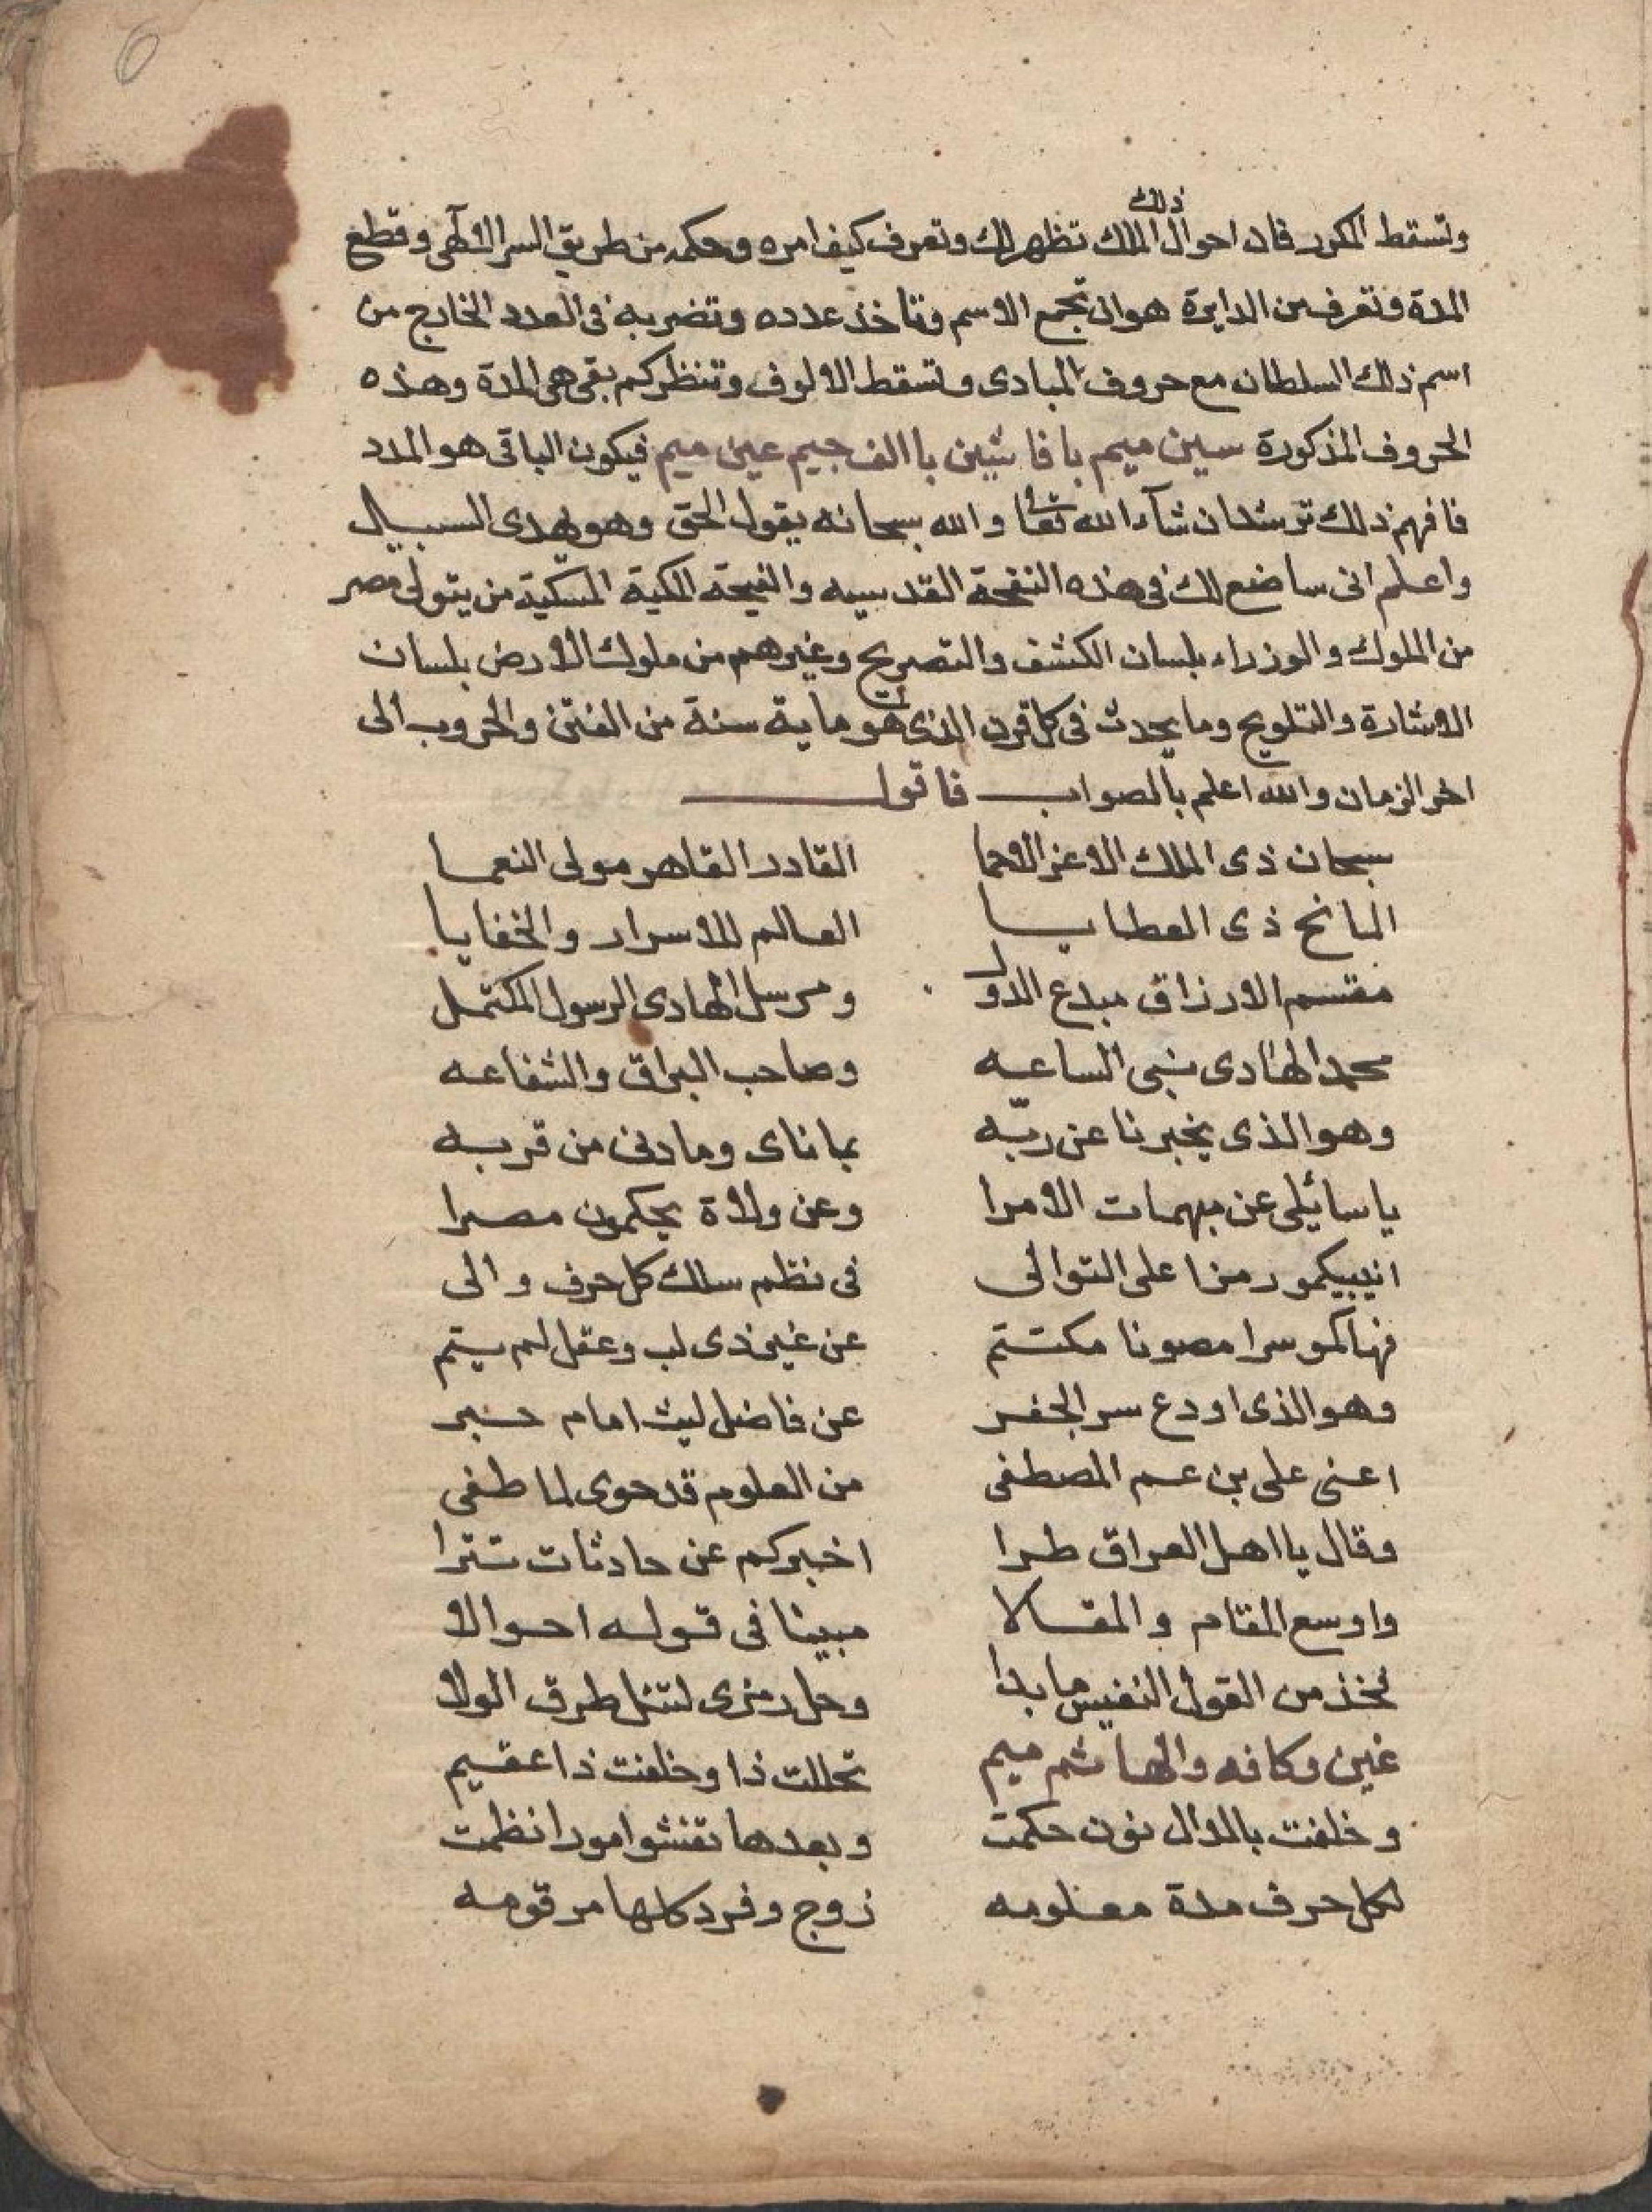 6
ذلك
وتسقط المكرر فان احوال الملك تظهر لك وتعرف كيف امره وحكمه من طريق السر الالهى وقطع
المدة وتعرف من الدايرة هو ان تجمع الاسم وتاخذ عدده وتضربه فى العدد الخارج من
اسم ذلك السلطان مع حروف المبادى وتسقط الالوف وتنظر كم بقى هى المدة وهذه
الحروف المذكورة سين ميم با فا شين با الف جيم عين ميم فيكون الباقى هو المدد
فافهم ذلك ترشد ان شآء الله تعا والله سبحانه يقول الحق وهو يهدى السبيل
واعلم انى ساضع لك فى هذه النفحة القدسيه والفيحة المكية المسكية من يتولى مصر
من الملوك والوزراء بلسان الكشف والتصريح وغيرهم من ملوك الارض بلسان
الاشارة والتلويح وما يحدث فى كل قرن الذى هو ماية سنة من الفتن والحروب الى
اخر الزمان والله اعلم بالصواب فاقول
سبحان ذى الملك الاعز الاحما القادر القاهر مولى النعما
المانح ذى العطايا العالم للاسرار والخفايا
مقسم الارزاق مبدع الدول ومرسل الهادى الرسول المكتمل
محمد الهادى نبى الساعه وصاحب البراق والشفاعه
وهو الذى يخبرنا عن ربّه بما ناى وما دنى من قربه
يا سائيلى عن مبهمات الامرا وعن ولاة يحكمون مصرا
انبيكمو رمزا على التوالى فى نظم سلك كل حرف والى
فهاكمو سرا مصونا مكتتم عن غير ذى لب وعقل لم يتم
وهو الذى اودع سر الجفر عن فاضل ليث امام حبر
اعنى على بن عم المصطفى من العلوم قد حوى لما طفى
وقال يا اهل العراق طرا اخبركم عن حادثات تترا
واوسع المقام والمقالا مبينا فى قوله احوالا
فخذ من القول النفيس ما بدا وحل رمزى لتنل طرق الولا
غين وكافه والها ثم ميم تحللت ذا وخلفت ذا عقيم
وخلفت بالدال نون حكمت وبعدها تفشو امورا نظمت
لكل حرف مدة معلومه زوج وفرد كلها مرقومه